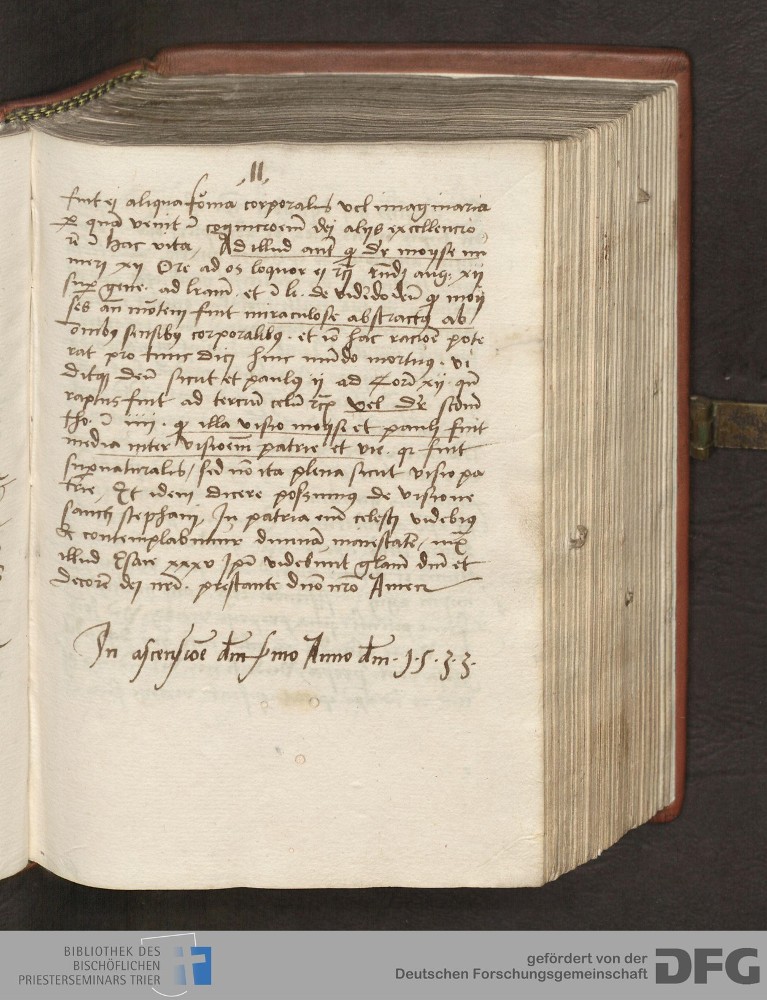 II
fuit ei aliqua forma corporalis vel imaginaria
p quā venit ī cognicioem dei alijs excellencio
rē ī hac vita, Ad illud aut q de moyse nu
meri xij Ore ad os loquor ei rc̄ rñdz aug. xij
sup gene. ad lram. et ī li. de videndo deū q moy
ses an mortem fuit miraculose abstractus ab
omibus sensibus corporalibus. et iō hac racioe pote
rat pro tunc dici huic mūdo mortuus. vi
ditque deū sicut et paulus ij ad Corī xij. qū
raptus fuit ad terciū celū rc̄ vel scdm
tho. ī iiii. q illa visio moysi et pauli fuit
media inter visioem patrie et vie. qr fuit
supnaturalis, sed nō ita plena sicut visio pa
trie, Et idem dicere possumus de visione
sancti stephani, In patria em celesti videbimus
& contemplabimur diuinā maiestatē, iux
illud Esaie xxxv Ipi videbunt glam dni et
decorē dei nri. prestante dno nro Amen
In ascensioe dni smo Anno dm. 1.5.3.3.
BIBLIOTHEK DES
BISCHÖFLICHEN
PRIESTERSEMINARS TRIER
gefördert von der
Deutschen Forschungsgemeinschaft
DFG